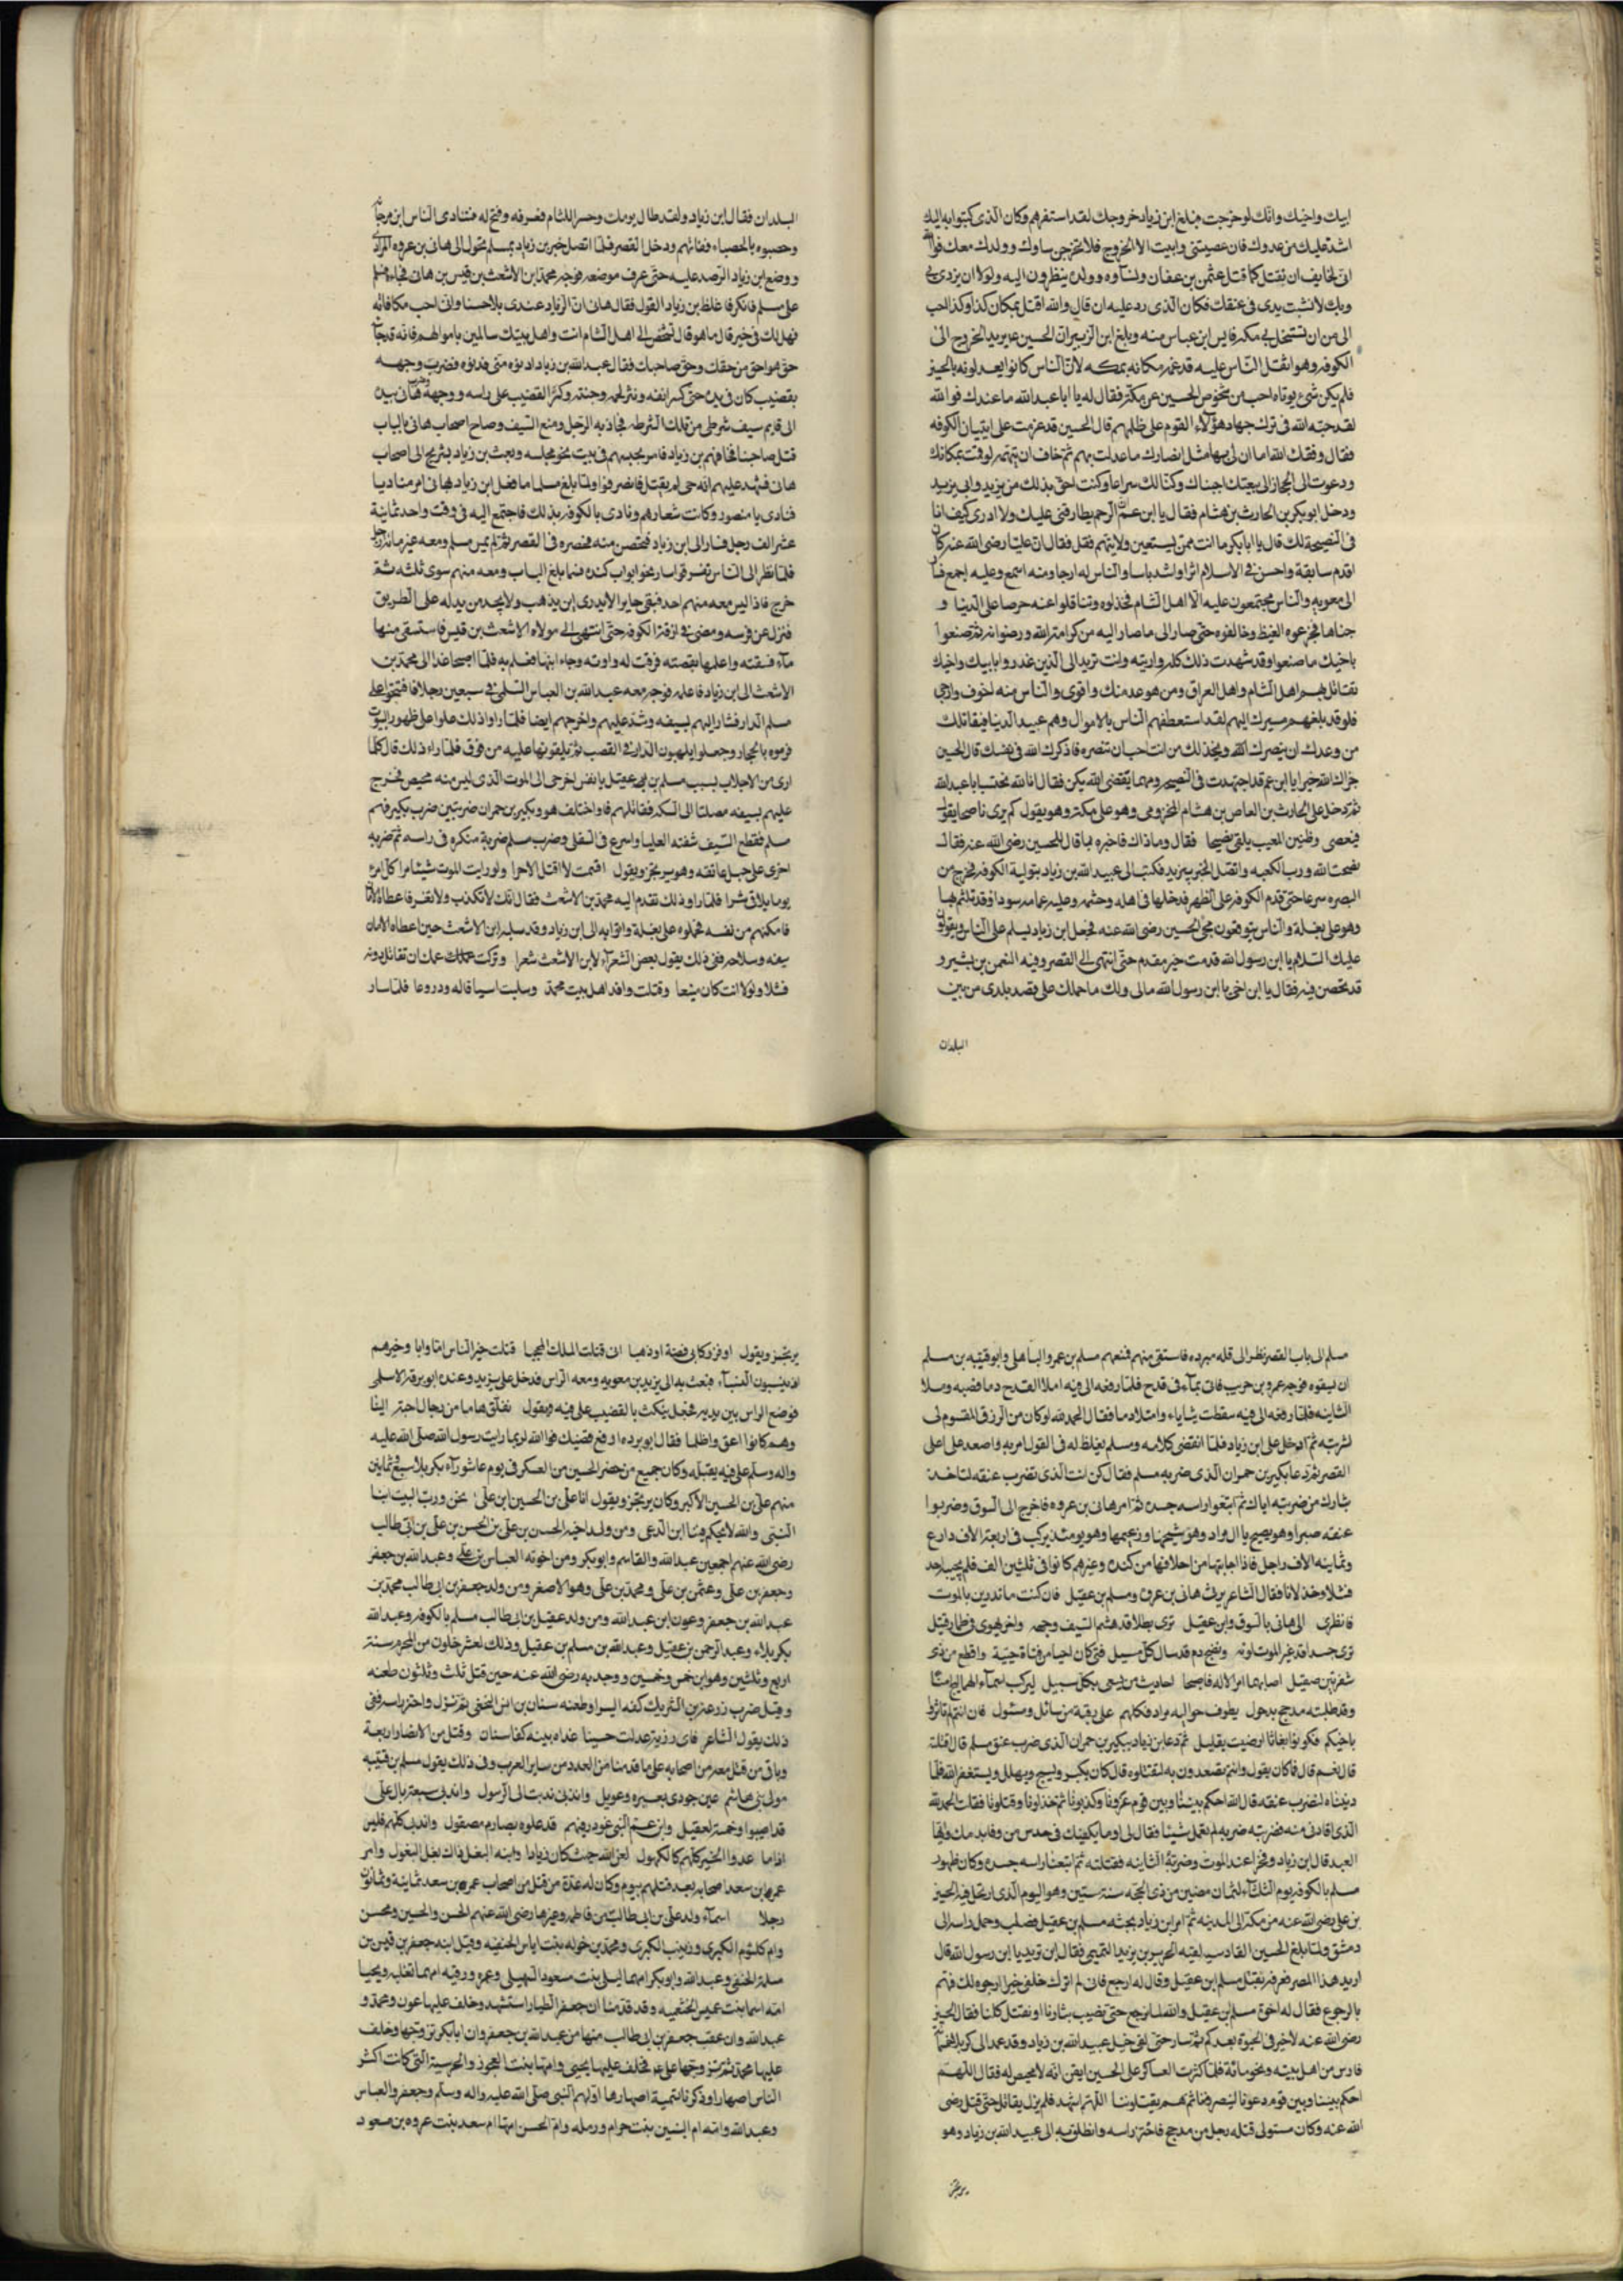 ابيك واخيك وانك لو خرجت فبلغ ابن زياد خروجك لقد استفرهم وكان الذى كتبوا به اليك
اشد عليك من عدوك فان عصيتنى وابيت الا الخروج فلا تخرجن نساوك وولدك معك فوالله
انى لخايف ان تقتل كما قتل عثمن بن عفان ونساوه وولده ينظرون اليه ولولا ان يزدرى بى
وبك لانشبت يدى فى عنقك فكان الذى رد عليه ان قال والله لاقتل بمكان كذا وكذا احب
الى من ان تستحل بى مكه فايس ابن عباس منه وبلغ ابن الزبير ان الحسين عم يريد الخروج الى
الكوفه وهو اثقل الناس عليه قد غمه مكانه بمكه لان الناس كانوا يعدلونه بالحسين
فلم يكن شىء يوتاه احب من شخوص الحسين عن مكة فقال له يا ابا عبدالله ما عندك فوالله
لقد خفت الله فى ترك جهاد هؤلاء القوم على ظلمهم قال الحسين قد عزمت على ايتيان الكوفه
فقال وفقك الله اما ان لى بها مثل انصارك ما عدلت بهم ثم خاف ان يتهمه لو قمت بمكانك
ودعوت الى الحجاز الى بيعتك اجبناك وكنا لك سراعا وكنت احق بذلك من يزيد وابى يزيد
ودخل ابو بكر بن الحارث بن هشام فقال يا ابن عم ان الرحم يظارفنى عليك ولا ادرى كيف انا
فى النصيحة لك قال يا ابا بكر ما انت ممن يستعين ولا يتهم فقل فقال ان عليا رضى الله عنه كان
اقدم سابقة واحسن فى الاسلام اثرا واشد باسا والناس له ارجا ومنه اسمع وعليه اجمع فسار
الى معويه والناس مجتمعون عليه الا اهل الشام فخذلوه وتثاقلوا عنه حرصا على الدنيا و
جناها فجرعوه الغيظ وخالفوه حتى صار الى ما صار اليه من كرامة الله ورضوانه ثم صنعوا
باخيك ما صنعوا وقد شهدت ذلك كله ورايته وانت تريد الى الذين غدروا بابيك واخيك
تقاتل بهم اهل الشام واهل العراق ومن هو عد منك واقوى والناس منه اخوف وارجى
فلو قد بلغهم مسيرك اليهم لقد استعطفهم الناس بالاموال وهم عبيد الدنيا فيقاتلك
من وعدك ان ينصرك ويخذلك من انت احب ان تنصره فاذكر الله فى نفسك قال الحسين
جزاك الله خيرا يا ابن عم قد اجتهدت فى النصيحه ومهما يقضى الله يكن فقال انا لله نحتسب ابا عبدالله
ثم دخل على الحارث بن العاص بن هشام المخزومى وهو على مكه وهو يقول كم يرى ناصحا يقول
فيعصى وظنين المعيب يلقى نصيحا فقال وما ذاك فاخبره بما قال للحسين رضى الله عنه فقال
نصحت الله ورب الكعبه واتقتل الخبر بيزيد فكتب الى عبيد الله بن زياد بتولية الكوفه فخرج من
البصره سرعا حتى قدم الكوفه على الظهر فدخلها فى اهله وحشمه وعليه عمامه سودا قد تلثم بها
وهو على بغلة والناس يتوقعون مجىء الحسين رضى الله عنه فجعل ابن زياد يسلم على الناس ويقولون
عليك السلام يا ابن رسول الله قدمت خير مقدم حتى انتهى الى القصر وفيه النعمن بن بشير و
قد تحصن فيه فقال يا ابن اخى يا ابن رسول الله مالى ولك ما حملك على قصد بلدى من بين
البلدان
البلدان فقال ابن زياد ولقد طال يومك وحسر اللثام فعرفه وفتح له فتنادى الناس ابن مرجانه
وحصبوه بالحصباء ففاتهم ودخل القصر فلما اتصل خبر بن زياد بمسلم تحول الى هانى بن عروه المرادى
ووضع ابن زياد الرصد عليه حتى عرف موضعه فوجه محمد ابن الاشعث بن قيس بن هانى فجاءه فسلم
على مسلم فانكر فاغلظ بن زياد القول فقال هانى ان لزياد عندى بلا حسنا وانى احب مكافاته
فهل لك فى خير قال ما هو قال تشخص الى اهل الشام انت واهل بيتك سالمين باموالهم فانه قد جاء
حق هو احق من حقك وحق صاحبك فقال عبدالله بن زياد ادنوه منى فدنوه فضرب وجهه
بقضيب كان فى يده حتى كسر انفه ونثر لحم وجنته وكسر القضيب على راسه ووجهه وضرب هانى بيده
الى قايم سيف شرطى من تلك الشرطه فجاذبه الرجل ومنع السيف وصاح اصحاب هانى بالباب
قتل صاحبنا فخافهم بن زياد فامر بحبسهم فى بيت نحو مجلسه وبعث بن زياد بشريح الى اصحاب
هانى فشهد عليهم انه حى لم يقتل فانصرفوا ولما بلغ مسلما ما فعل ابن زياد بهانى امر مناديا
فنادى يا منصور وكانت شعارهم ونادى بالكوفه بذلك فاجتمع اليه فى وقت واحد ثمانية
عشر الف رجل فسار الى ابن زياد فتحصن منه فحصره فى القصر ثم لم يمس مسلم ومعه غير مائة رجل
فلما نظر الى الناس تفرقوا سار نحو ابواب كنده فما بلغ الباب ومعه منهم سوى ثلثه ثم
خرج فاذا ليس معه منهم احد فبقى حايرا لا يدرى اين يذهب ولا يجد من يدله على الطريق
فنزل عن فرسه ومضى فى ازقة الكوفه حتى انتهى الى مولاه الاشعث بن قيس فاستسقى منها
ماء فسقته واعلمها بقصته فرقت له واوته وجاء ابنها فعلم به فلما اصبحا غدا الى محمد بن
الاشعث الى ابن زياد فاعلمه فوجه معه عبدالله بن العباس السلمى فى سبعين رجلا فاقتحموا على
مسلم الدار فثار اليهم بسيفه وشد عليهم واخرجهم ايضا فلما راوا ذلك علوا على ظهور البيوت
فرموه بالحجاره وجعلوا يلهبون النار فى القصب ثم يلقونها عليه من فوق فلما راى ذلك قال كلما
ارى من الاجلاب بسبب مسلم بن عقيل يا نفس اخرجى الى الموت الذى ليس منه محيص فخرج
عليهم بسيفه مصلتا الى السكه فقاتلهم واختلف هو وبكير بن حمران ضربتين ضرب بكير فم
مسلم فقطع السيف شفته العليا واسرع فى السفلى وضرب مسلم ضربة منكره فى راسه ثم ضربه
اخرى على حبل عاتقه وهو يرتجز ويقول اقسمت لا اقتل الا حرا ولو رايت الموت شيئا مرا كل امرء
يوما يلاقى شرا فلما راوا ذلك تقدم اليه محمد بن الاشعث فقال انك لا تكذب ولا تغر فاعطاه الامان
فامكنهم من نفسه فحملوه على بغلة واتوا به الى ابن زياد وقد سلبه ابن الاشعث حين اعطاه الامان
سيفه وسلاحه ففى ذلك يقول بعض الشعرآء لابن الاشعث شعرا وتركت عمك ان تقاتل دونه
فشلا ولولا انت كان منيعا وقتلت وافد اهل بيت محمد وسلبت اسيافا له ودروعا فلما سار
مسلم الى باب القصر نظر الى قله مبرده فاستسقى منهم فمنعهم مسلم بن عمرو الباهلى وابو قتيبه بن مسلم
ان يسقوه فوجه عمرو بن حريب فاتى بمآء فى قدح فلما رفعه الى فيه امتلا القدح دما فصبه وملا
الثانيه فلما رفعه الى فيه سقطت ثناياه وامتلا دما فقال الحمد لله لو كان من الرزق المقسوم لى
لشربته ثم ادخل على ابن زياد فلما انقضى كلامه ومسلم يغلظ له فى القول امر به واصعد على اعلى
القصر ثم دعا بكير بن حمران الذى ضربه مسلم فقال كن انت الذى تضرب عنقه لتاخذ
بثارك من ضربته اياك ثم اتبعوا راسه جسده ثم امر هانى بن عروه فاخرج الى السوق وضربوا
عنقه صبرا وهو يصيح يال مراد وهو شيخها وزعيمها وهو يومئذ يركب فى اربعة الاف دارع
وثمانيه الاف راجل فاذا اجابتها من احلافها من كنده وغيرهم كانوا فى ثلثين الف فلم يجبه احد
فشلا وخذلانا فقال الشاعر يرثى هانى بن عروه ومسلم بن عقيل فان كنت ما تدرين بالموت
فانظرى الى هانى بالسوق وابن عقيل ترى بطلا قد هشم السيف وجهه واخر يهوى فى طمار قتيل
ترى جسدا قد غير الموت لونه ونضح دم قد سال كل مسيل فتى كان احيا من فتاة حييه واقطع من ذى
شفرتين صقيل اصابهما امر الاله فاصبحا احاديث من يسعى بكل سبيل ايركب اسمآء الهماليج امنا
وقد طلبته مدحج بذحول يطوف حواليه مراد فكلهم على رقبة من سائل ومسئول فان انتم لم تثاروا
باخيكم فكونوا بغايا ارضيت بقليل ثم دعا بن زياد ببكير بن حمران الذى ضرب عنق مسلم قال قتلته
قال نعم قال فما كان يقول وانتم تصعدون به لتقتلوه قال كان يكبر ويسبح ويهلل ويستغفر الله فلما
دنيناه لنضرب عنقه قال الله احكم بيننا وبين قوم غرونا وكذبونا ثم خذلونا وقتلونا فقلت الحمد لله
الذى اقادنى منه فضربته ضربة لم تعمل شيئا فقال لى او ما يكفيك فى خدش من وفا بدمك ايها
العبد قال ابن زياد وفخرا عند الموت وضربته الثانيه فقتلته ثم اتبعنا راسه جسده وكان ظهور
مسلم بالكوفه يوم الثلثاء لثمان مضين من ذى الحجه سنة ستين وهو اليوم الذى ارتحل فيه الحسين
بن على رضى الله عنه من مكة الى المدينه ثم امر ابن زياد بجثه مسلم بن عقيل فصلب وحمل راسه الى
دمشق ولما بلغ الحسين القادسيه لقيه الحر بن يزيد التميمى فقال اين تريد يا ابن رسول الله قال
اريد هذا المصر فعرفه بقتل مسلم ابن عقيل وقال له ارجع فانى لم اترك خلفى خيرا ارجوه لك فهم
بالرجوع فقال له اخوة مسلم بن عقيل والله لا نرجع حتى نصيب بثارنا او نقتل كلنا فقال الحسين
رضى الله عنه لا خير فى الحيوة بعدكم ثم سار حتى لقى خيل عبيد الله بن زياد وقد عدا الى كربلا فى خمسمائة
فارس من اهل بيته ونحو مائة فلما كثرت العساكر على الحسين ايقن انه لا محيص له فقال اللهم
احكم بيننا وبين قوم دعونا لينصرونا ثم هم يقتلوننا اللهم اشهد فلم يزل يقاتل حتى قتل رضى
الله عنه وكان متولى قتله رجل من مدحج فاحتز راسه وانطلق به الى عبيد الله بن زياد وهو
يرتجز
يرتجز ويقول اوقر ركابى فضة او ذهبا ان قتلت الملك المحجبا قتلت خير الناس اما وابا وخيرهم
اذ ينسبون النسباء فبعث به الى يزيد بن معويه ومعه الراس فدخل على يزيد وعنده ابو برزة الاسلمى
فوضع الراس بين يديه فجعل ينكت بالقضيب على فيه ويقول نفلق هاما من رجال احبة الينا
وهم كانوا اعق واظلما فقال ابو برده ارفع قضيبك فوالله لربما رايت رسول الله صلى الله عليه
واله وسلم على فيه يقبله وكان جميع من حضر الحسين من العسكر فى يوم عاشورآء بكربلا سبع وثمانين
منهم على بن الحسين الاكبر وكان يرتجز ويقول انا على بن الحسين ابن على نحن ورب البيت ابنا
النبى والله لا يحكم فينا ابن الدعى ومن ولد اخيه الحسن بن على بن الحسن بن على بن ابى طالب
رضى الله عنهم اجمعين عبدالله والقاسم وابو بكر ومن اخوته العباس بن على وعبدالله بن جعفر
وجعفر بن على وعثمن بن على ومحمد بن على وهو الاصغر ومن ولد جعفر بن ابى طالب محمد بن
عبدالله بن جعفر وعون ابن عبدالله ومن ولد عقيل بن ابى طالب مسلم بالكوفه وعبدالله
بكربلاء وعبد الرحمن بن عقيل وعبدالله بن مسلم بن عقيل وذلك لعشر خلون من المحرم سنة
اربع وثلثين وهو ابن خمس وخمسين ووجد به رضى الله عنه حين قتل ثلث وثلثون طعنه
وقيل ضرب زرعة بن الشريك كفه اليسرا وطعنه سنان بن انس النخعى ثم نزل واحتز راسه ففى
ذلك يقول الشاعر فاى رزية عدلت حسينا غداه بينه كفا سنان وقتل من الانصار اربعة
وباقى من قتل معه من اصحابه على ما قدمنا من العدد من ساير العرب وفى ذلك يقول مسلم بن قتيبه
مولى بنى هاشم عين جودى بعبره وعويل واندبى ندبت الى الرسول واندبى سبعة بال على
قد اصيبوا وخمسة لعقيل وابن عم النبى غودر فيهم قد علوه بصارم مصقول واندب كلهم فليس
اذا ما عدوا الخير كلهم كالكهول لعن الله حيث كان زيادا وابنه البغل ذاك بغل البغول وامر
عمر بن سعد اصحابه بعد قتلهم بيوم وكان له عدة من قتل من اصحاب عمر بن سعد ثمانية وثمانون
رجلا اسمآء ولد على بن ابى طالب من فاطمه وغيرها رضى الله عنهم الحسن والحسين ومحسن
وام كلثوم الكبرى وزينب الكبرى ومحمد بن خوله بنت اياس الحنفيه وقيل ابنه جعفر بن قيس بن
مسلمة الحنفى وعبدالله وابو بكر امهما ليلى بنت مسعود النهيلى وعمر ورقيه امهما تغلبه ويحيا
امه اسما بنت عميس الخثعميه وقد قدمنا ان جعفر الطيار استشهد وخلف عليها عون ومحمد و
عبدالله وان عقب جعفر بن ابى طالب منها من عبدالله بن جعفر وان ابا بكر تزوجها وخلف
عليها محمد ثم تزوجها على عم فخلف عليها يحيى وامها بنت العجوز والحرسية التى كانت اكثر
الناس اصهارا وذكرنا تسمية اصهارها اولهم النبى صلى الله عليه واله وسلم وجعفر والعباس
وعبدالله وامه ام البنين بنت حرام ورمله وام الحسن امها ام سعد بنت عروه بن مسعود